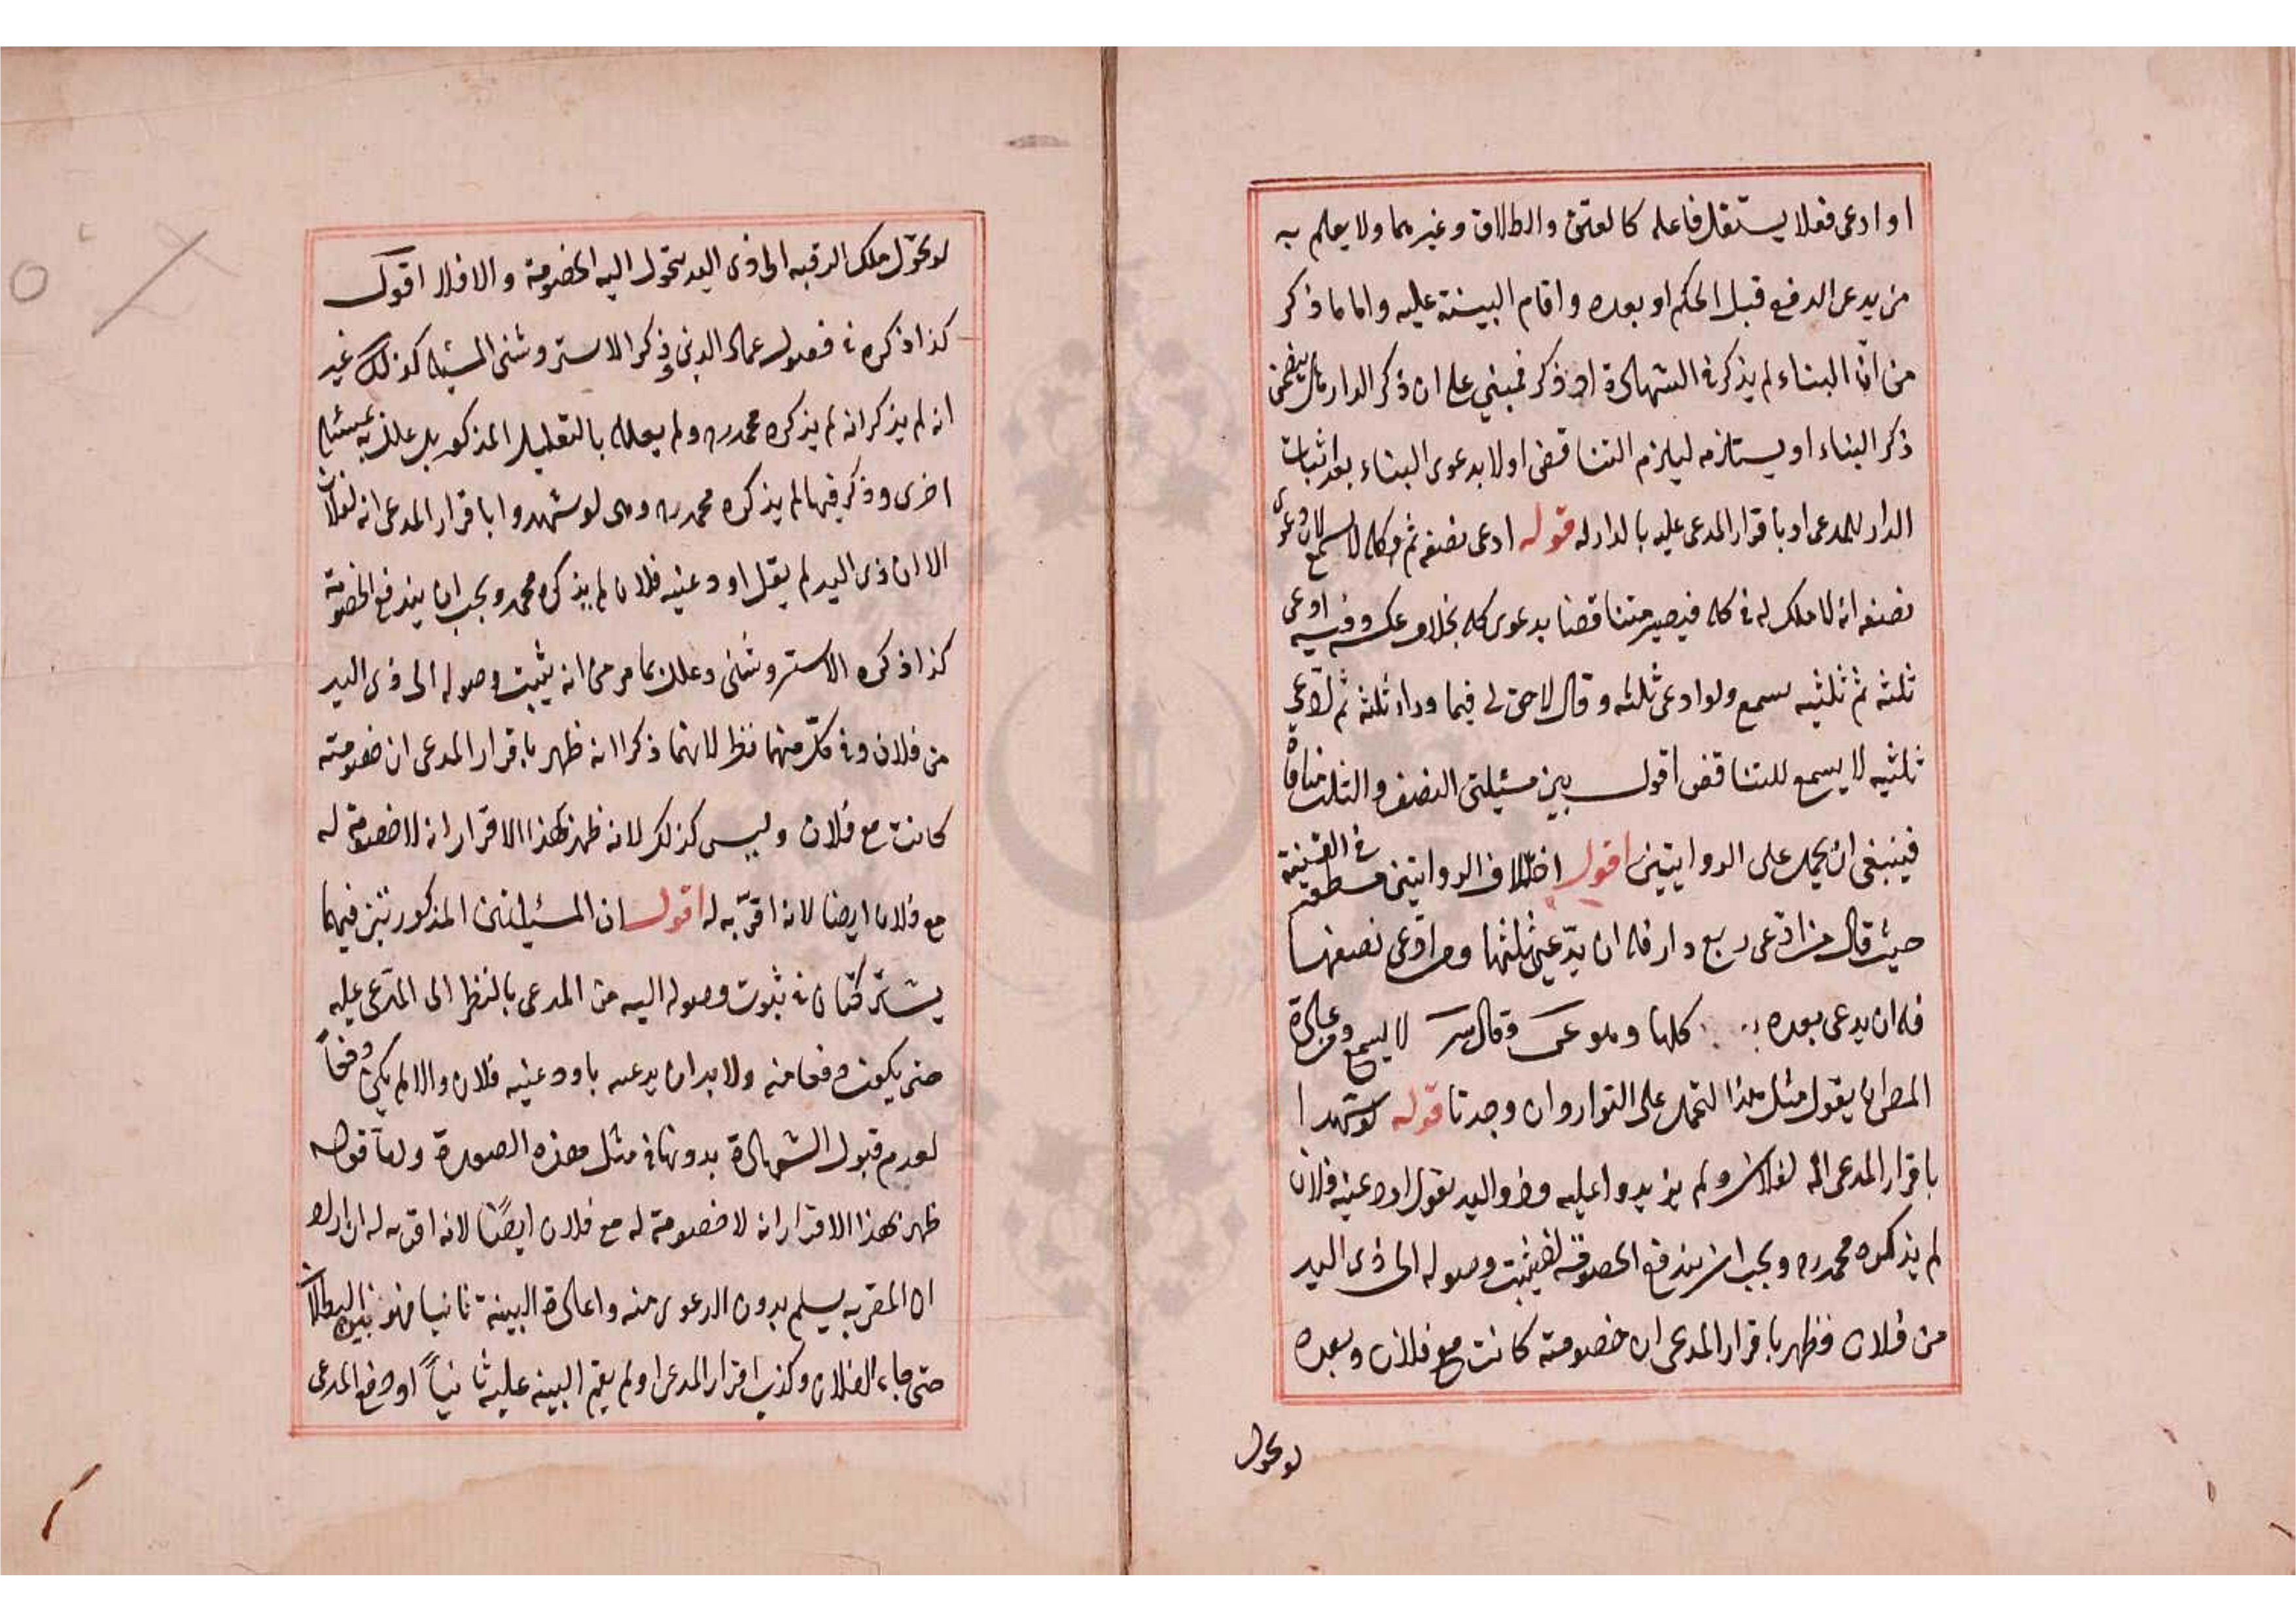 او ادعى فعلا يستقل فاعله كالعتق والطلاق وغيرهما ولا يعلم به
من يدعى الدفع قبل الحكم او بعده واقام البينة عليه واما ما ذكر
من ان البناء لم يذكر فى الشهادة او ذكر فمبني على ان ذكر الدار هل يتضمن
ذكر البناء او يستلزمه ليلزم التناقض اولا بدعوى البناء بعد اثبات
الدار للمدعى او باقرار المدعى عليه بالدار له قوله ادعى نصفه ثم كله لا يسمع لان دعوى
نصفه انه لا ملك له فى كله فيصير متناقضا بدعوى كله بخلاف عكسه وفيه ادعى
ثلثه ثم ثلثيه سمع ولو ادعى ثلثه وقال لا حق لى فيما وراء ثلثه ثم ادعى
ثلثيه لا يسمع للتناقض اقول بين مسئلتى النصف والثلث منافاة
فينبغى ان يحمل على الروايتين اقول اختلاف الروايتين فى القنية
حيث قال من ادعى ربع دار فله ان يدعى ثلثها ومن ادعى نصفها
فله ان يدعى بعده كلها وقال لا يسمع
المص ان يقول مثل هذا التحمل على التوارد وان وجد تا قوله لو شهدا
باقرار المدعى انه لفلان ولم يزيدوا عليه وذو اليد يقول اودعنيه فلان
لم يذكره محمد ره ويجب ان يندفع الخصومة وصوله الى ذى اليد
من فلان فظهر باقرار المدعى ان خصومته كانت مع فلان وبعده
لو تحول
لو تحوّل ملك الرقبه الى ذى اليد يتحول اليه الخصومة والا فلا اقول
كذا ذكره فى فصول عماد الدين وذكر الاستروشنى المسئله كذلك غير
انه لم يذكر انه لم يذكره محمد ره ولم يعلله بالتعليل المذكور بل علل به مسئله
اخرى وذكر فيها لم يذكره محمد ره وهى لو شهدوا باقرار المدعى انه لفلان
الا ان ذى اليد لم يقل اودعنيه فلان لم يذكره محمد ويجب ان يندفع الخصومة
كذا ذكره الاستروشنى وعلل بما مر من انه يثبت وصوله الى ذى اليد
من فلان وفى كلّ منهما نظر لانهما ذكرا انه ظهر باقرار المدعى ان خصومته
كانت مع فلان وليس كذلك لانه ظهر بهذا الاقرار انه لا خصومة له
مع فلان ايضا لانه اقرّ به له اقول ان المسئلتين المذكورتين فيهما
يشتركان فى ثبوت وصوله اليه من المدعى بالنظر الى المدّعى عليه
حتى يكون دفعا منه ولا بد ان يدعيه باودعنيه فلان والا لم يكن دفعاً
لعدم قبول الشهادة بدونها فى مثل هذه الصورة واما قوله
ظهر بهذا الاقرار انه لا خصومة له مع فلان ايضًا لانه اقر به له ان اراد
ان المقر به يسلم بدون الدعوى منه واعادة البينة ثانيا فهو بين البطلان
حتى جاء الفلان وكذب اقرار المدعى او لم يقم البينه عليه ثانياً او دفع المدعى